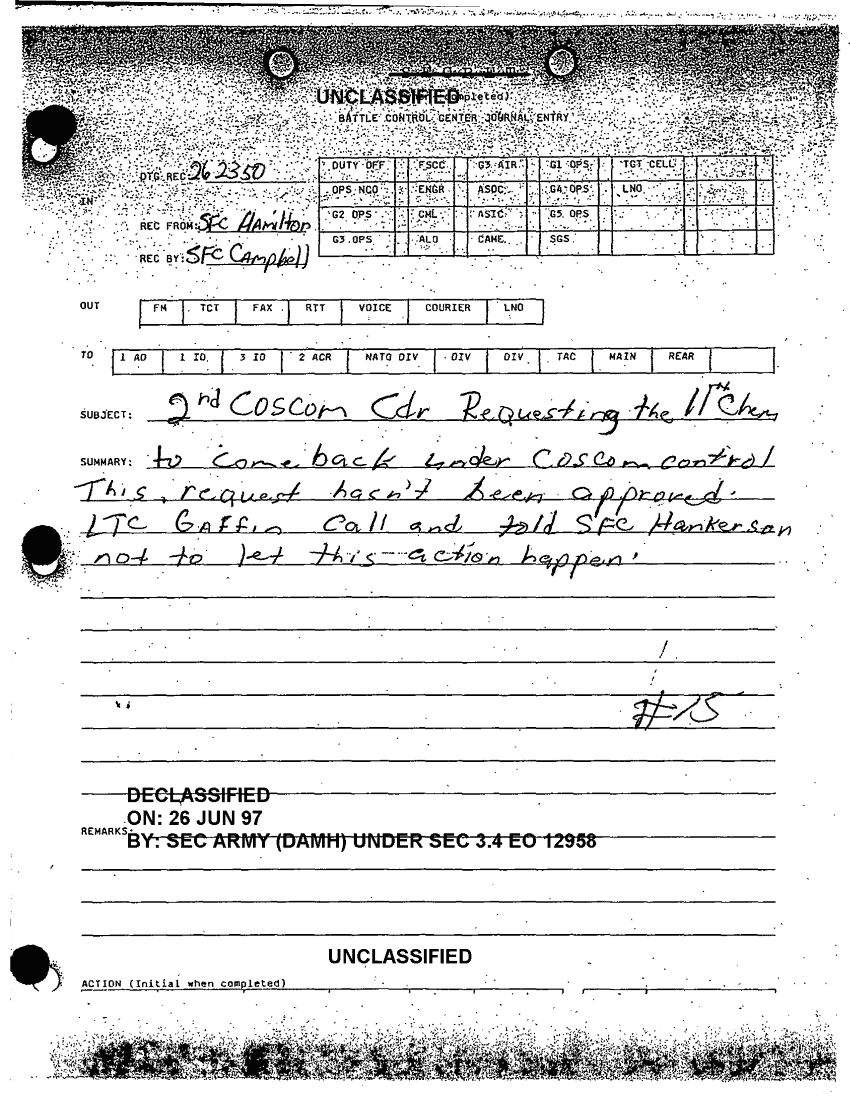 UNCLASSIFIED
BATTLE CONTROL CENTER JOURNAL ENTRY
DTG REC: 262350
IN
REC FROM: SFC Hamilton
REC BY: SFC Campbell
DUTY OFF FSCC G3 AIR G1 OPS TGT CELL
OPS NCO ENGR ASOC G4 OPS LNO
G2 OPS CML ASIC G5 OPS
G3 OPS ALO CAME SGS
OUT FM TCT FAX RTT VOICE COURIER LNO
TO 1 AD 1 ID 3 ID 2 ACR NATO DIV DIV DIV TAC MAIN REAR
SUBJECT: 2nd Coscom Cdr Requesting the 11th Chem
SUMMARY: to come back under Coscom control
This request hasn't been approved.
LTC Gaffin Call and told SFC Hankerson
not to let this action happen.
#15
DECLASSIFIED
ON: 26 JUN 97
REMARKS:
BY: SEC ARMY (DAMH) UNDER SEC 3.4 EO 12958
UNCLASSIFIED
ACTION (Initial when completed)